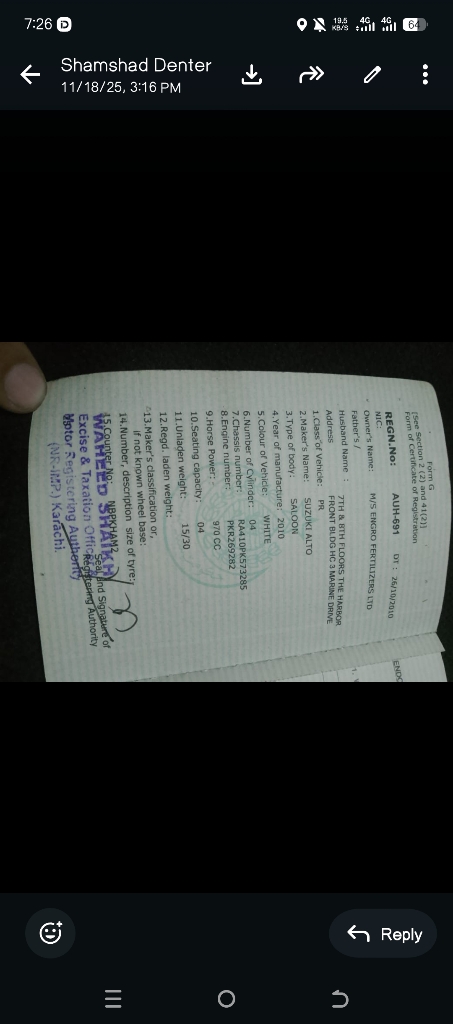 7:26
19.5 KB/S 4G 4G 64
Shamshad Denter
11/18/25, 3:16 PM
Form G
[See section 2(2) and 41(2)]
Form of Certificate of Registration
REGN.No: AUH-691 DT : 26/10/2010
NIC:
Owner's Name: M/S ENGRO FERTILIZERS LTD
Father's /
Husband Name :
Address 7TH & 8TH FLOORS THE HARBOR
FRONT BLDG HC 3 MARINE DRIVE
1.Class of Vehicle: PR
2.Maker's Name: SUZUKI ALTO
3.Type of body: SALOON
4.Year of manufacture: 2010
5.Colour of Vehicle: WHITE
6.Number of Cylinder: 04
7.Chassis number: RA410PK573285
8.Engine number: PKR269282
9.Horse Power: 970 CC
10.Seating capacity: 04
11.Unladen weight: 15/30
12.Regd. laden weight:
13.Maker's classification or,
if not known wheel base:
14.Number, description size of tyre:
15.Counter
Seal and Signature of
Registering Authority
WAHEED SHAIKH
Excise & Taxation Officer
Motor Registering Authority
Karachi.
ENDO
Reply